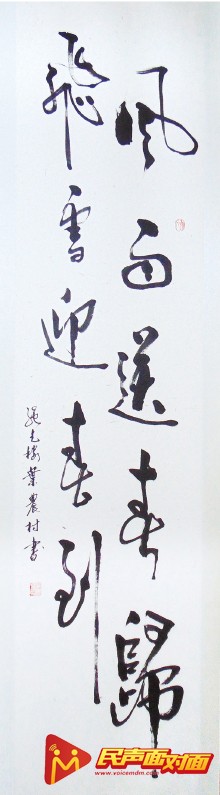 風雨送春歸
飛雪迎春到
葉農村書
民声面对面
www.voicemdm.com